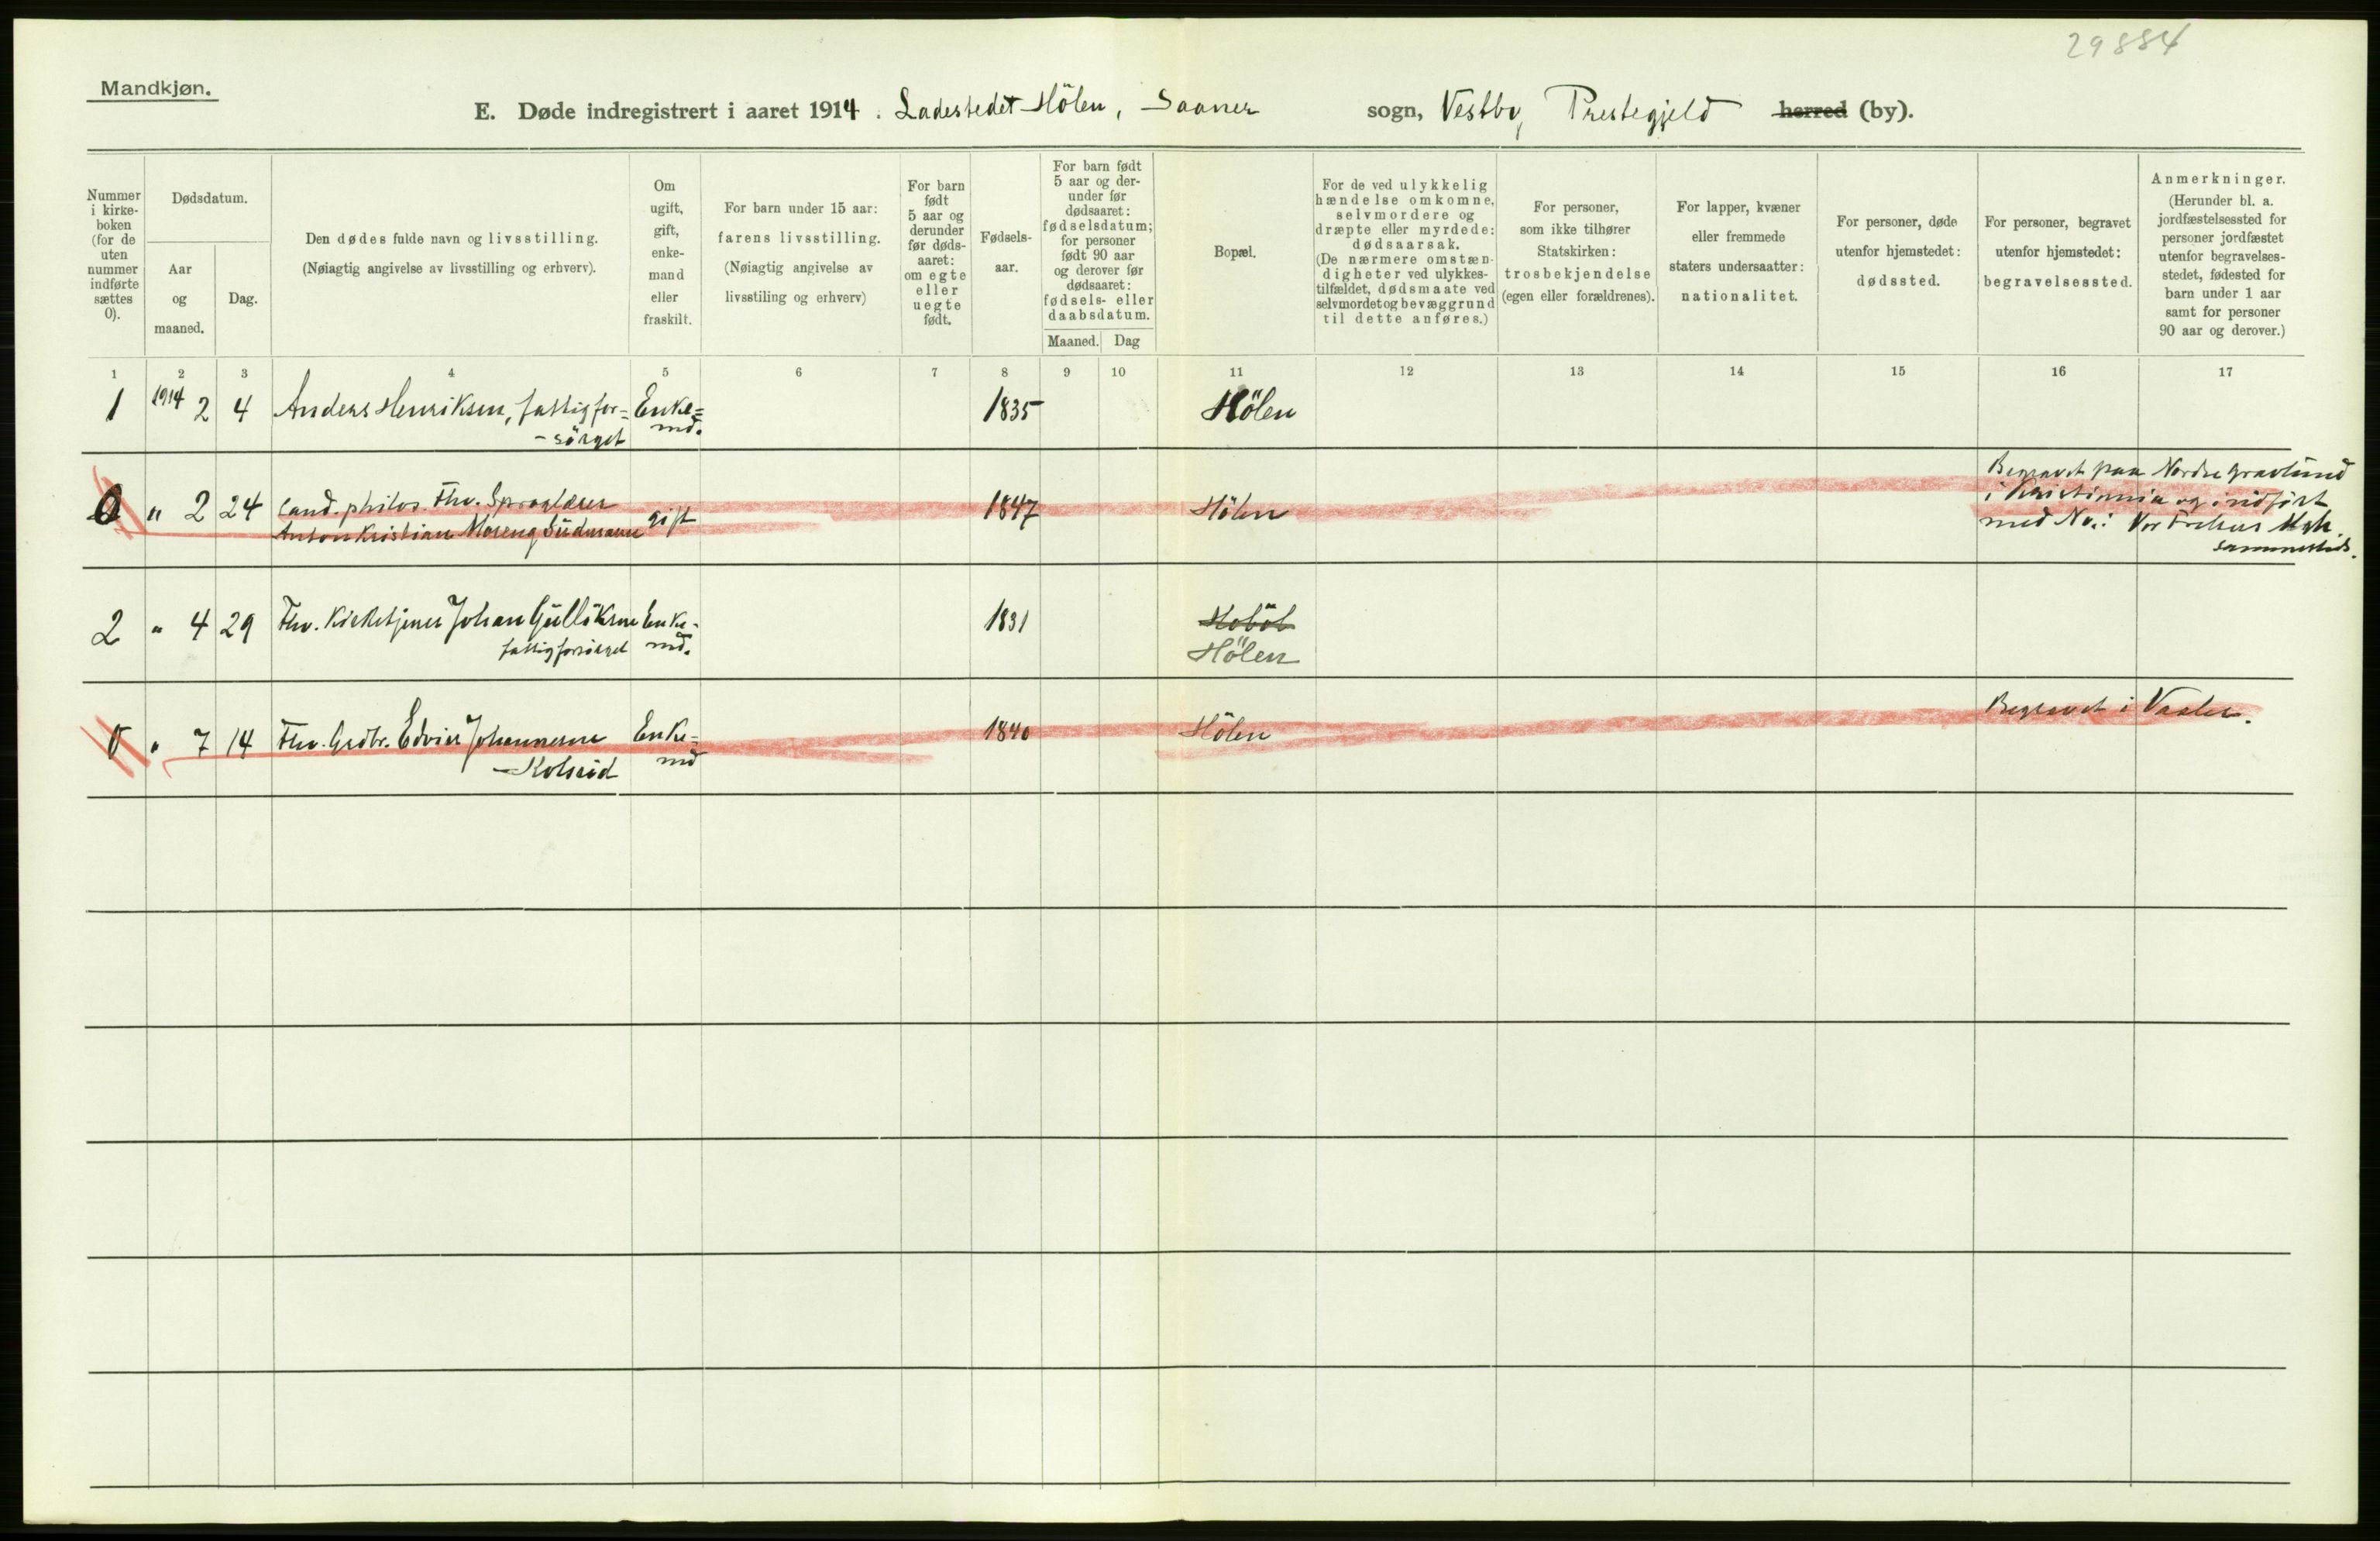 29884
Mandkjøn.
E. Døde indregistrert i aaret 1914. Ladestedet Hölen, Saaner sogn, Vestby Prestegjeld herred (by).
Nummer
i kirke-
boken
(for de
uten
nummer
indførte
sættes
0).
Dødsdatum.
Aar
og
maaned.
Dag.
Den dødes fulde navn og livsstilling.
(Nøiagtig angivelse av livsstilling og erhverv).
Om
ugift,
gift,
enke-
mand
eller
fraskilt.
For barn under 15 aar:
farens livsstilling.
(Nøiagtig angivelse av
livsstiling og erhverv)
For barn
født
5 aar og
derunder
før døds-
aaret:
om egte
eller
uegte
født.
Fødsels-
aar.
For barn født
5 aar og der-
under før
dødsaaret:
fødselsdatum;
for personer
født 90 aar
og derover før
dødsaaret:
fødsels- eller
daabsdatum.
Maaned. Dag
Bopæl.
For de ved ulykkelig
hændelse omkomne,
selvmordere og
dræpte eller myrdede:
dødsaarsak.
(De nærmere omstæn-
digheter ved ulykkes-
tilfældet, dødsmaate ved
selvmordet og bevæggrund
til dette anføres.)
For personer,
som ikke tilhører
Statskirken:
trosbekjendelse
(egen eller forældrenes).
For lapper, kvæner
eller fremmede
staters undersaatter:
nationalitet.
For personer, døde
utenfor hjemstedet:
dødssted.
For personer, begravet
utenfor hjemstedet:
begravelsessted.
Anmerkninger.
(Herunder bl. a.
jordfæstelsessted for
personer jordfæstet
utenfor begravelses-
stedet, fødested for
barn under 1 aar
samt for personer
90 aar og derover.)
1 2 3 4 5 6 7 8 9 10 11 12 13 14 15 16 17
1 1914 2 4 Anders Henriksen, fattigfor= Enke= 1835 Hölen
-sörget md.
0 " 2 24 cand. philos. Fhv. Sproglærer gift 1847 Hölen
Anton Kristian Moseng
Begravet paa Nordre gravlund
i Kristiania og indført
med No. i Vor Frelsers Mgh.
sammesteds.
2 " 4 29 Fhv. Kirketjener Johan Gulliksen Enke- 1831 Hobøl
fattigforsörget md. Hölen
0 " 7 14 Fhv. Grdbr. Edvin Johannesen Enke= 1840 Hölen Begravet i Vaaler.
md